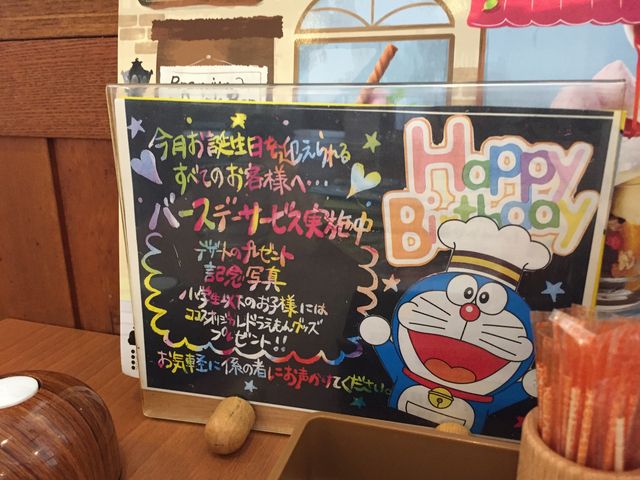 今月お誕生日を迎えられる
すべてのお客様へ…
バースデーサービス実施中
デザートのプレゼント
記念写真
小学生以下のお子様には
ココスオリジナルドラえもんグッズ
プレゼント!!
お気軽に係の者にお声かけてください。
Happy
Birthday